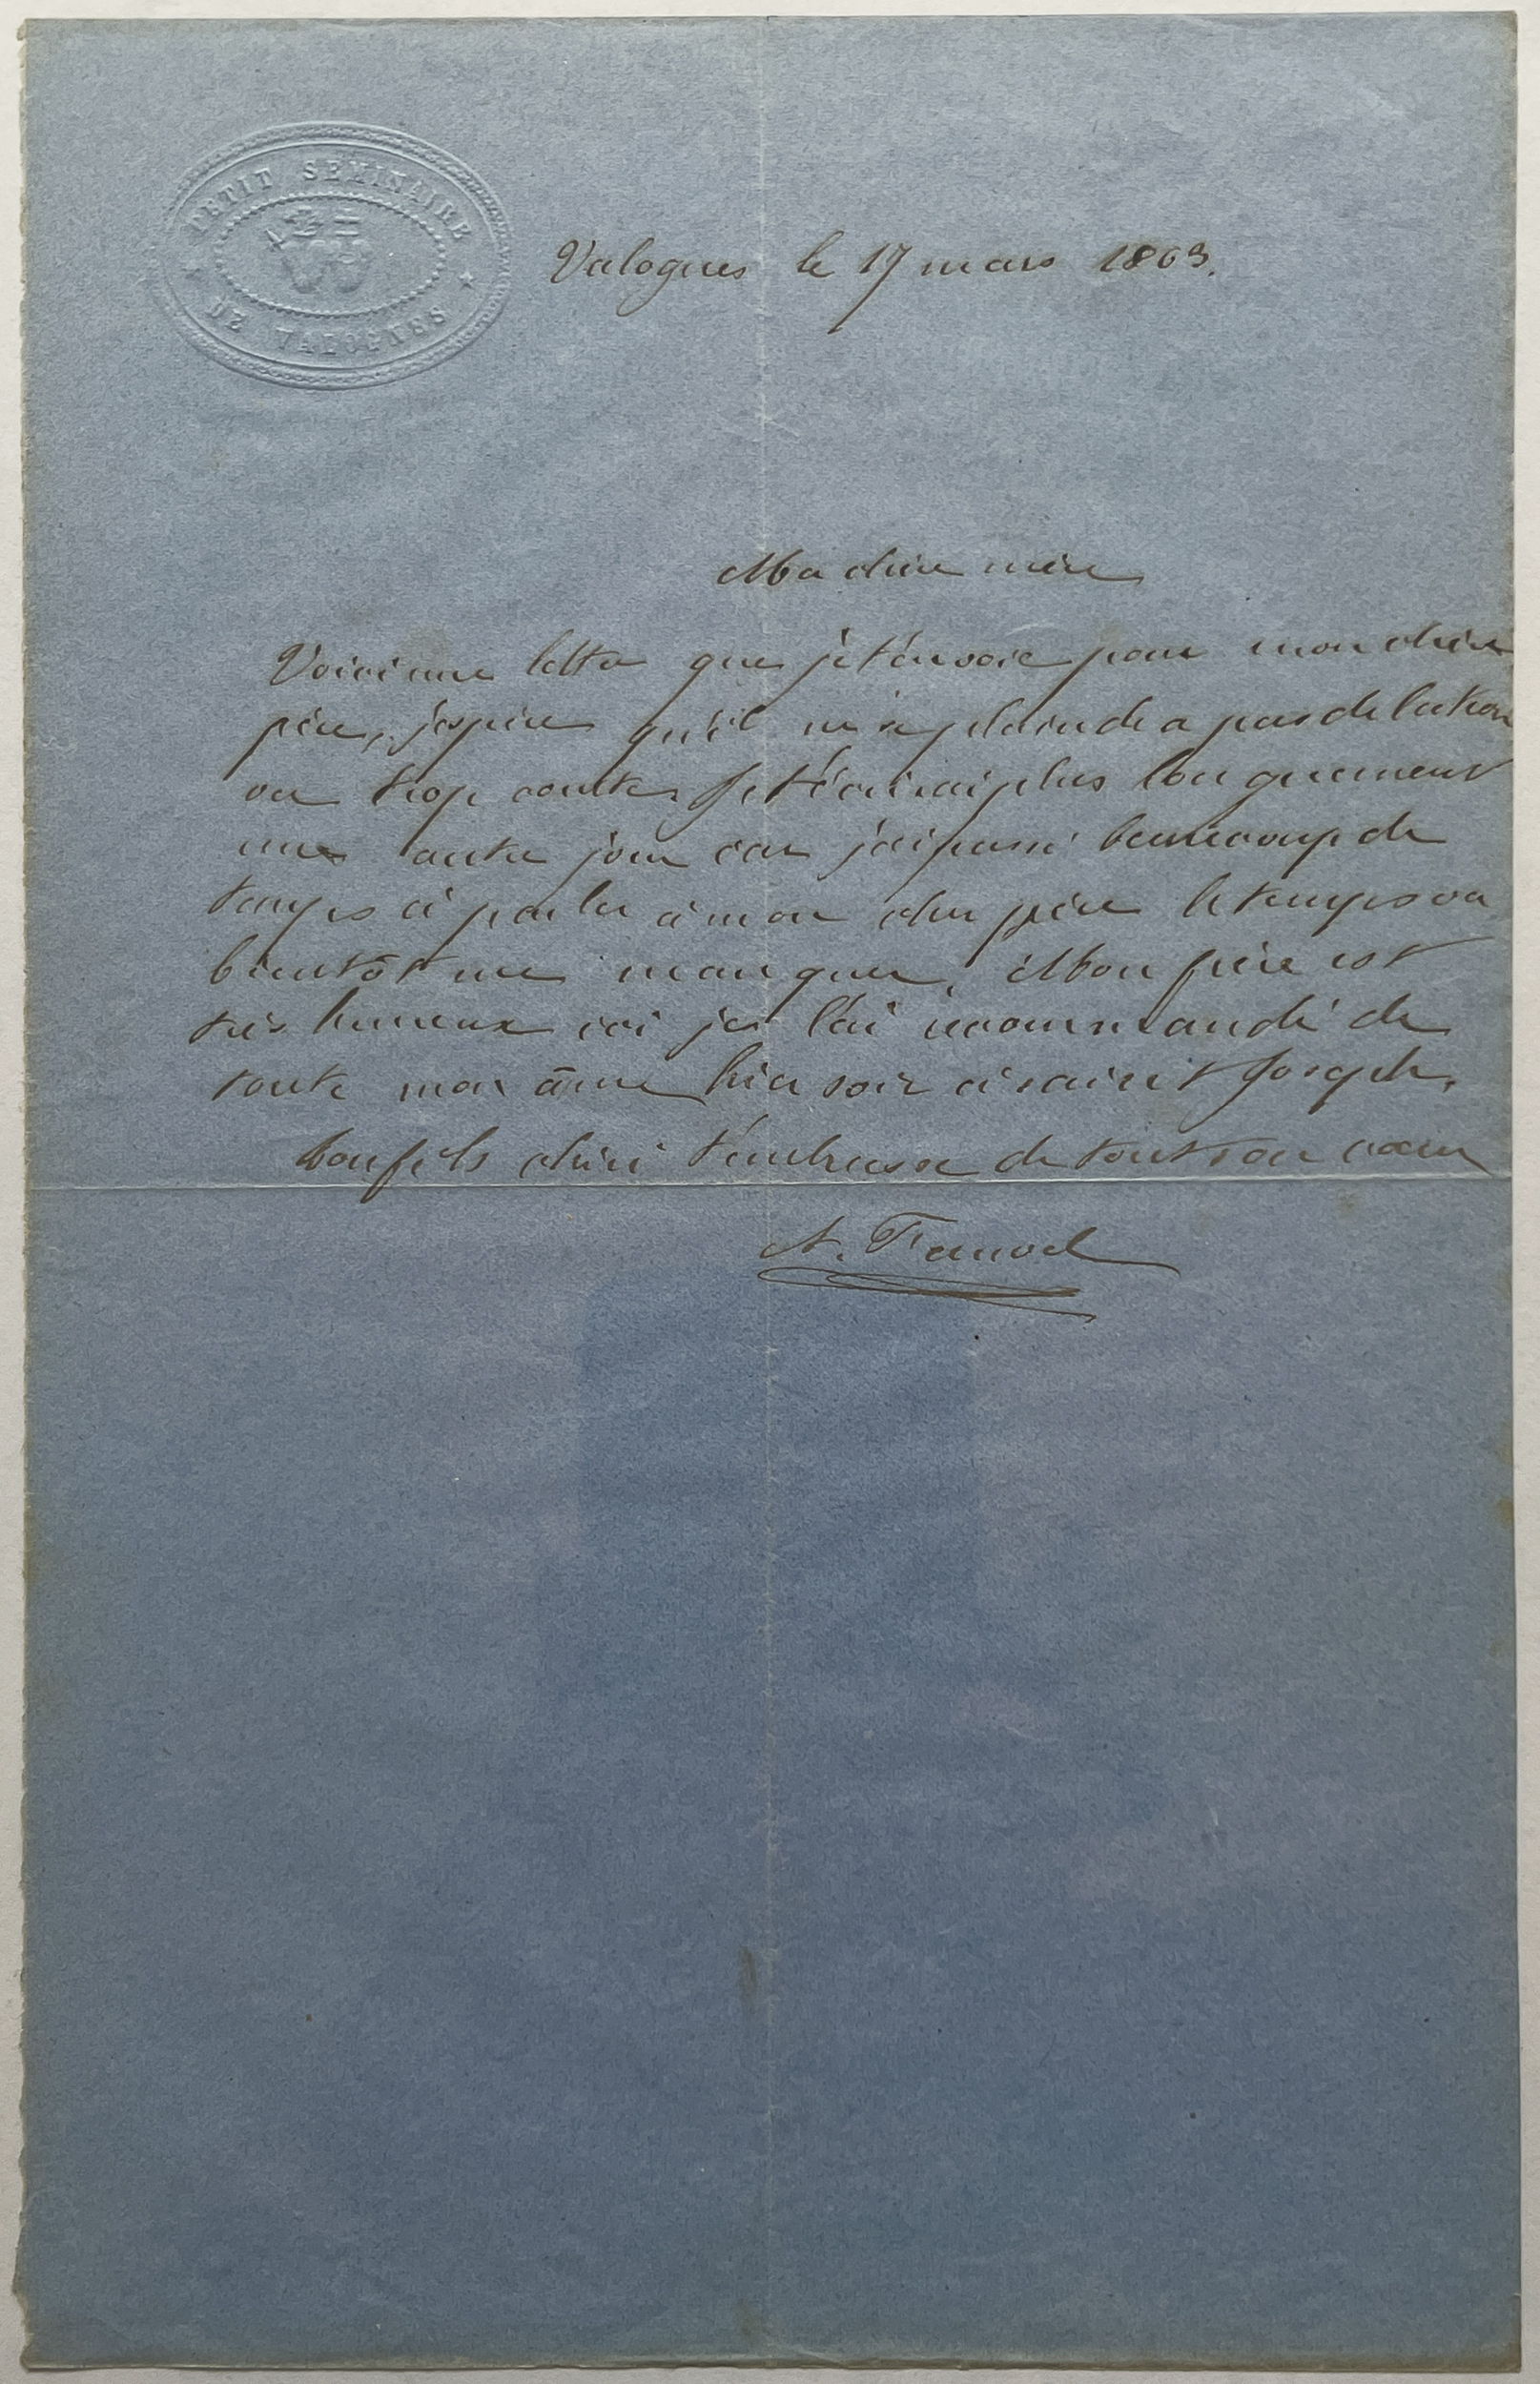 PETIT SEMINAIRE
DE VALOGNES
Valognes le 17 mars 1863.
Ma chère mère
Voici une lettre que je t'envoie pour mon chère
père, j'espère qu'il ne se plaindra pas de la trouver
trop courte. Je t'écrirai plus longuement
une autre jour car j'ai passé beaucoup de
temps à parler à mon cher père le temps va
bientôt me manquer. Mon frère est
très heureux ici je l'ai recommandé de
toute mon âme hier soir à saint Joseph.
Ton fils chéri t'embrasse de tout son cœur
A. Fauvel